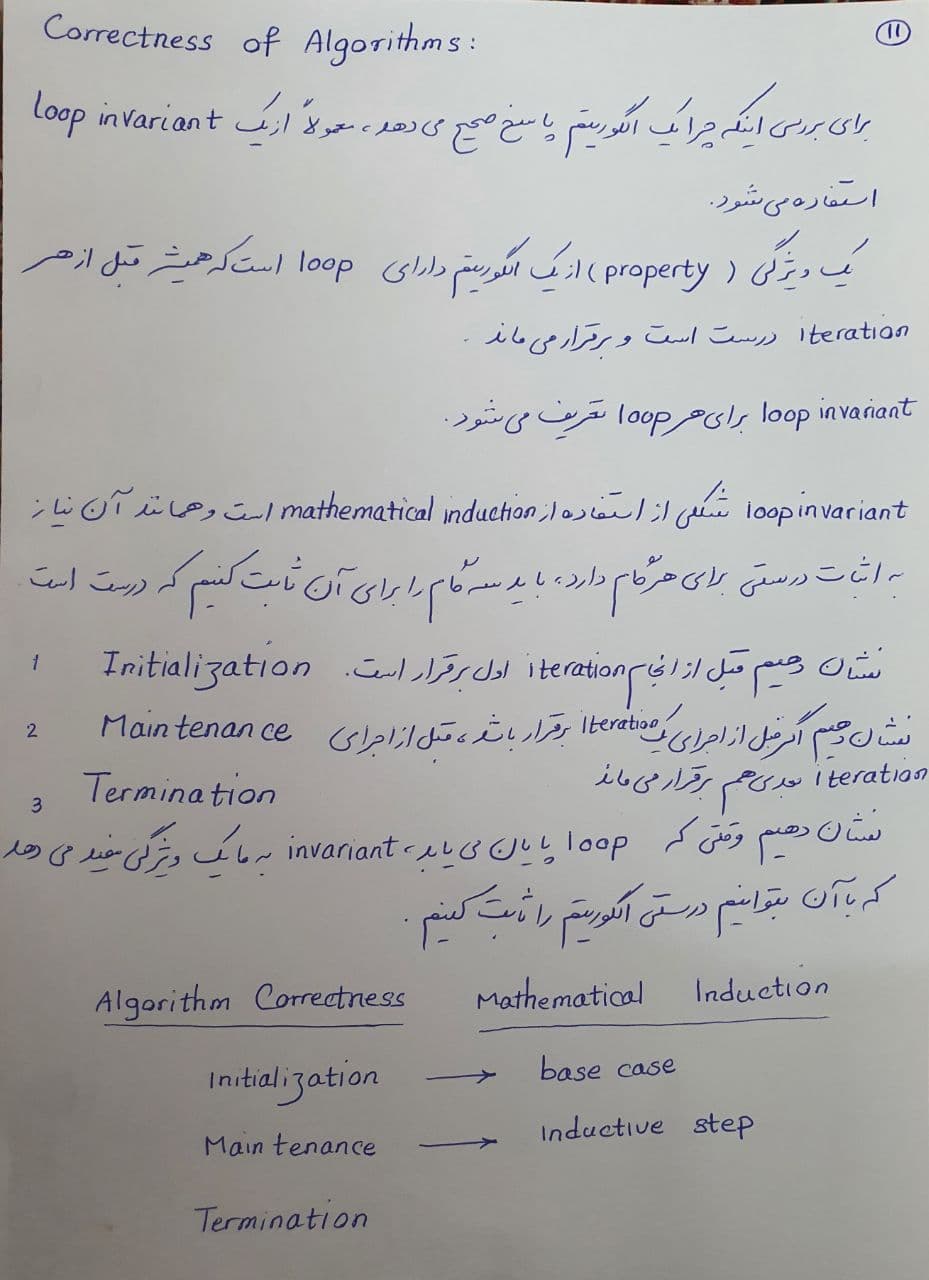 Correctness of Algorithms:
11
برای بررسی اینکه چرا یک الگوریتم پاسخ صحیح می‌دهد، معمولاً از یک loop invariant
استفاده می‌شود.
یک ویژگی (property) از یک الگوریتم دارای loop است که همیشه قبل از هر
iteration درست است و برقرار می‌ماند.
loop invariant برای هر loop تعریف می‌شود.
loop invariant شکلی از استفاده از mathematical induction است و همانند آن نیاز
به اثبات درستی برای هر گام دارد، باید سه گام را برای آن ثابت کنیم که درست است
1 Initialization نشان دهیم قبل از انجام iteration اول برقرار است.
2 Maintenance نشان دهیم اگر قبل از اجرای یک iteration برقرار باشد، قبل از اجرای
iteration بعدی هم برقرار می‌ماند
3 Termination
نشان دهیم وقتی که loop پایان می‌یابد، invariant به ما یک ویژگی مفید می‌دهد
که با آن بتوانیم درستی الگوریتم را ثابت کنیم.
Algorithm Correctness Mathematical Induction
Initialization → base case
Maintenance → inductive step
Termination